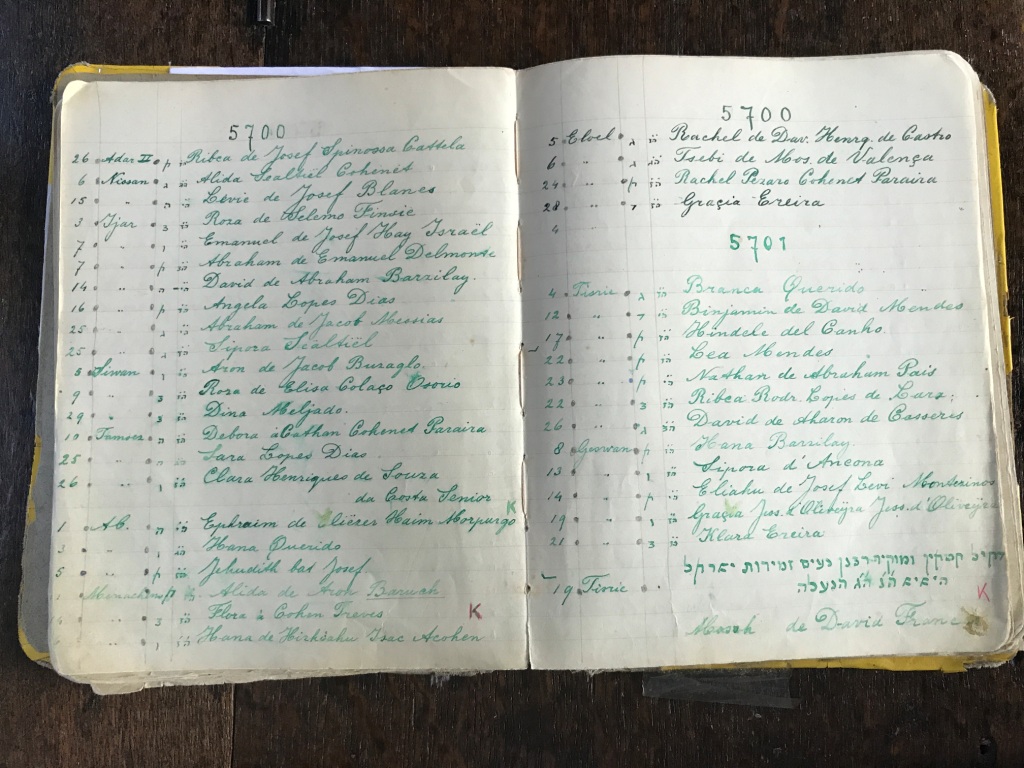 5700
26 Adar II Ribca de Josef Spinossa Cattela
6 Nissan Alida Sealtiel Cohenet
15 " Levie de Josef Blanes
3 Ijar Roza de Selemo Finsie
7 " Emanuel de Josef Hay Israël
7 " Abraham de Emanuel Delmonte
14 " David de Abraham Barzilay
16 " Angela Lopes Dias
25 " Abraham de Jacob Messias
25 " Sipora Sealtiël
3 Siwan Aron de Jacob Buraglo
9 " Roza de Elisa Colaço Osorio
29 " Dina Meljado
10 Tamoez Debora à Cathan Cohenet Paraira
25 " Sara Lopes Dias
26 " Clara Henriques de Souza
da Costa Senior
K
1 Ab. Ephraim de Eliëzer Haim Morpurgo
3 " Hana Querido
5 " Jehudith bat Josef
Menachem Alida de Aron Baruch
" Flora à Cohen Treves K
" Hana de Hizkiahu Isac Acohen
5700
5 Eloel Rachel de Dav. Henrq. de Castro
6 " Tsebi de Mos. de Valença
24 " Rachel Pezaro Cohenet Paraira
28 " Graçia Ereira
4
5701
4 Tisrie Branca Querido
12 " Binjamin de David Mendes
17 " Hindele del Canho
22 " Lea Mendes
23 " Nathan de Abraham Pais
22 " Ribca Rodr. Lopes de Lara
26 " David de Aharon de Casseres
8 Geswan Hana Barzilay
13 " Sipora d'Ancona
14 " Eliahu de Josef Levi Montezinos
19 " Graçia Jess. d'Oliveÿra Jess. d'Oliveÿra
21 " Klara Ereira
נעים זמירות
19 Tisrie
K
de David Franc